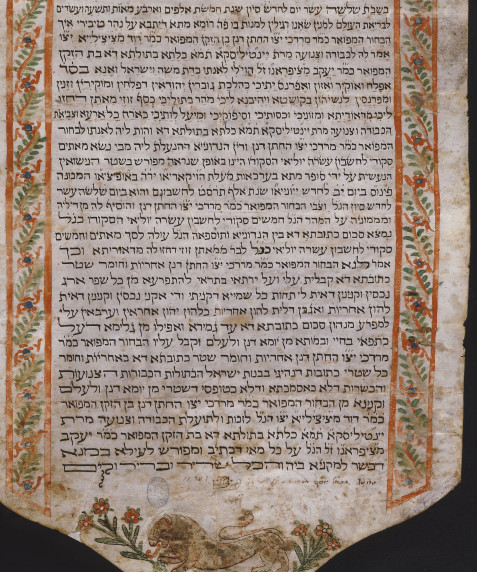 בשבת שלשה עשר יום לחדש סיון שנת חמשת אלפים וארבע מאות ותשעה ועשרים
לבריאת העולם למנין שאנו רגילין למנות בו פה רומא מתא דיתבא על נהר טיברי איך
הבחור המפואר כמר מרדכי יצו החתן דנן בן הזקן המפואר כמר דוד מציציליאנו יצו
אמר לה לכבודה וצנועה מרת יינטיליסקא תמא כלתא בתולתא דא בת הזקן
המפואר כמר יעקב מציפראנו זל הוי לי לאנתו כדת משה וישראל ואנא בסד
אפלח ואוקיר ואזון ואפרנס יתיכי כהלכת גוברין יהודאין דפלחין ומוקירין וזנין
ומפרנסין לנשיהון בקושטא ויהיבנא ליכי מהר בתוליכי כסף זוזי מאתן דחזו
ליכי מדאוריתא ומזוניכי וכסותיכי וסיפוקיכי ומיעל לותיכי כארח כל ארעא וצביאת
הכבודה וצנועה מרת יינטיליסקא תמא כלתא בתולתא דא והות ליה לאנתו לבחור
המפואר כמר מרדכי יצו החתן דנן ודין הנדוניא דהנעלת ליה מבי נשא מאתים
סקודי לחשבון עשרה יוליאי הסקודו היינו באופן שנראה מפורש בשטר הנשואין
הנעשית על ידי סופר מתא
לחדש יוניאו שנת אלף תרסט לחשבונם והוא יום שלשה עשר
לחדש סיון הנל וצבי הבחור המפואר כמר מרדכי יצו החתן דנן והוסיף לה מן דיליה
וממוניה על המהר הנל חמשים סקודי לחשבון עשרה יוליאי הסקודו כנל
נמצא סכום כתובתא דא בין הנדוניא ותוספאה הנל עולה לסך מאתים וחמשים
סקודי לחשבון עשרה יוליאי כנל לבר ממאתן זוזי דחזו לה מדאוריתא וכך
אמר לנא הבחור המפואר כמר מרדכי יצו החתן דנן אחריות וחומר שטר
כתובתא דא קבלית עלי ועל ירתאי בתראי להתפרעא מן כל שפר ארג
נכסין וקנינין דאית לי תחות כל שמיא דקניתי ודי אקני נכסין וקנינין דאית
להון אחריות ואגבן דלית להון אחריות כלהון יהון אחראין וערבאין עלי
לפרע מנהון סכום כתובתא דא עד גמירא ואפילו מן גלימא דעל
כתפאי בחיי ובמותא מן יומא דנן ולעלם וקבל עליו הבחור המפואר כמר
מרדכי יצו החתן דנן אחריות וחומר שטר כתובתא דא כאחריות וחומר
כל שטרי כתובות דנהיגי בבנות ישראל הבתולות הכבודות הצנועות
והכשרות דלא כאסמכתא ודלא כטופסי דשטרי מן יומא דנן ולעלם
וקנינא מן הבחור המפואר כמר מרדכי יצו החתן דנן בן הזקן המפואר
כמר דוד מציציליאנו יצו הנל לזכות ולתועלת הכבודה וצנועה מרת
יינטיליסקא תמא כלתא בתולתא דא בת הזקן המפואר כמר יעקב
מציפראנו זל הנל על כל מאי דכתיב ומפורש לעילא במנא
דכשר למקניא ביה והכל שריר ובריר וקים